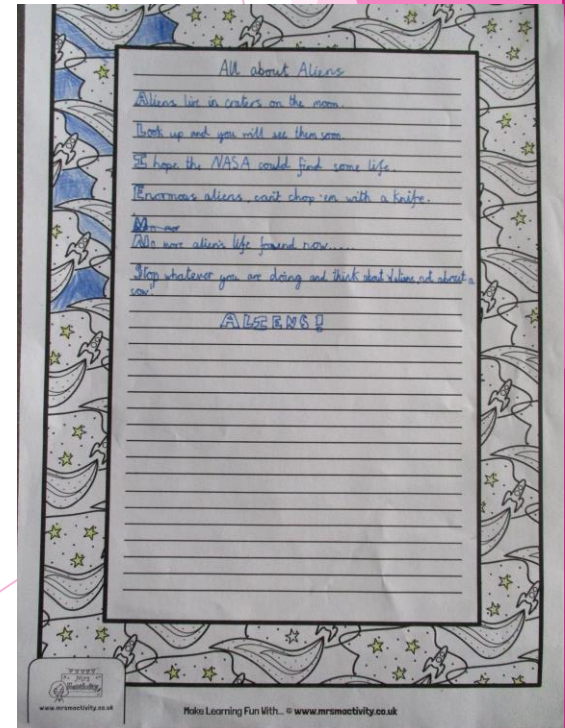 All about Aliens
Aliens live in craters on the moon.
Look up and you will see them soon.
I hope the NASA could find some life.
Enormous aliens, can't chop 'em with a knife.
No mor
No more aliens life found now.....
Stop whatever you are doing and think about Aliens, not about a
cow.
ALIENS!
Mrs
Mactivity
www.mrsmactivity.co.uk
Make Learning Fun With... © www.mrsmactivity.co.uk